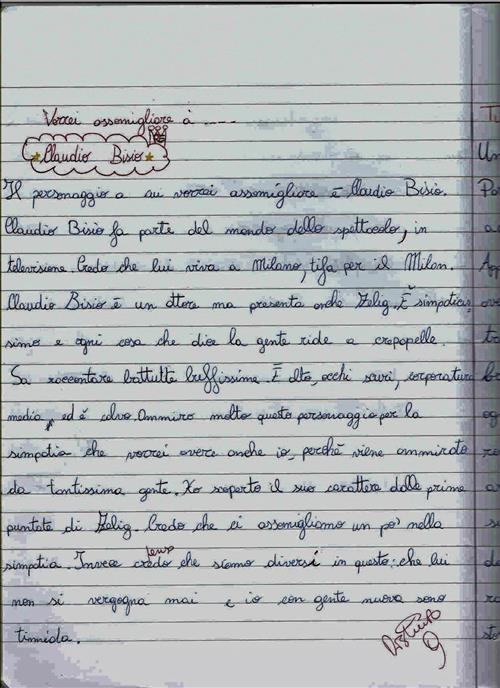 Vorrei assomigliare a ....
Claudio Bisio
Il personaggio a cui vorrei assomigliare è Claudio Bisio.
Claudio Bisio fa parte del mondo dello spettacolo, in
televisione. Credo che lui viva a Milano, tifa per il Milan.
Claudio Bisio è un attore ma presenta anche Zelig. È simpaticis
simo e ogni cosa che dice la gente ride a crepapelle.
Sa raccontare battutte buffissime. È alto, occhi scuri, corporatura
media, ed è calvo. Ammiro molto questo personaggio per la
simpatia che vorrei avere anche io, perché viene ammirato
da tantissima gente. Ho scoperto il suo carattere dalle prime
puntate di Zelig. Credo che ci assomigliamo un po' nella
simpatia. Invece credo che siamo diversi in questo: che lui
non si vergogna mai e io con gente nuova sono
timida.